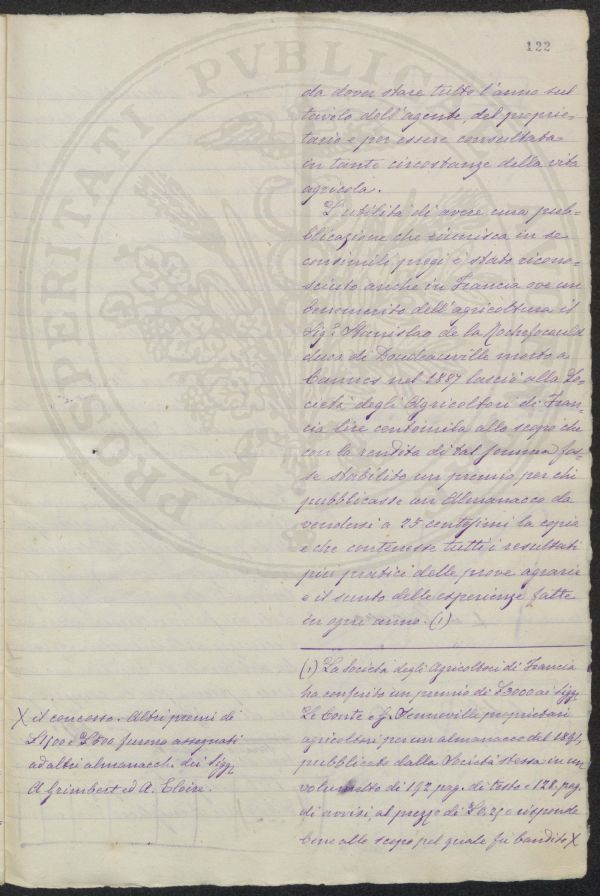 122
da dover stare tutto l'anno sul
tavolo dell'agente, del proprie=
tario e per essere consultata
in tante circostanze della vita
agricola.
L'utilità di avere una pub=
blicazione che riunisca in se
consimili pregi è stato ricono=
sciuto anche in Francia ove un
benemerito dell'agricoltura il
Sig.r Stanislao de la Rochefocauld
duca di Doudeauville morto a
Cannes nel 1887 lasciò alla So=
cietà degli Agricoltori di Fran=
cia lire centomila allo scopo che
con la rendita di tal somma fos=
se stabilito un premio per chi
pubblicasse un Almanacco da
vendersi a 25 centesimi la copia
e che contenesse tutti i resultati
più pratici delle prove agrarie
e il sunto delle esperienze fatte
in ogni anno. (1)
(1) La Società degli Agricoltori di Francia
ha conferito un premio di £3000 ai Sigg.
Le Conte e G. proprietari
agricoltori per un almanacco del 1891,
pubblicato dalla Società stessa in un
volumetto di 192 pag. di testo e 128 pag.
di avvisi, al prezzo di £ 0,25 e risponde
bene allo scopo pel quale fu bandito X
X il concorso. Altri premi di
e £500 furono assegnati
ad altri almanacchi dei Sigg.
A Grimbert ed A. Eloire.
PROSPERITATI PVBLICAE